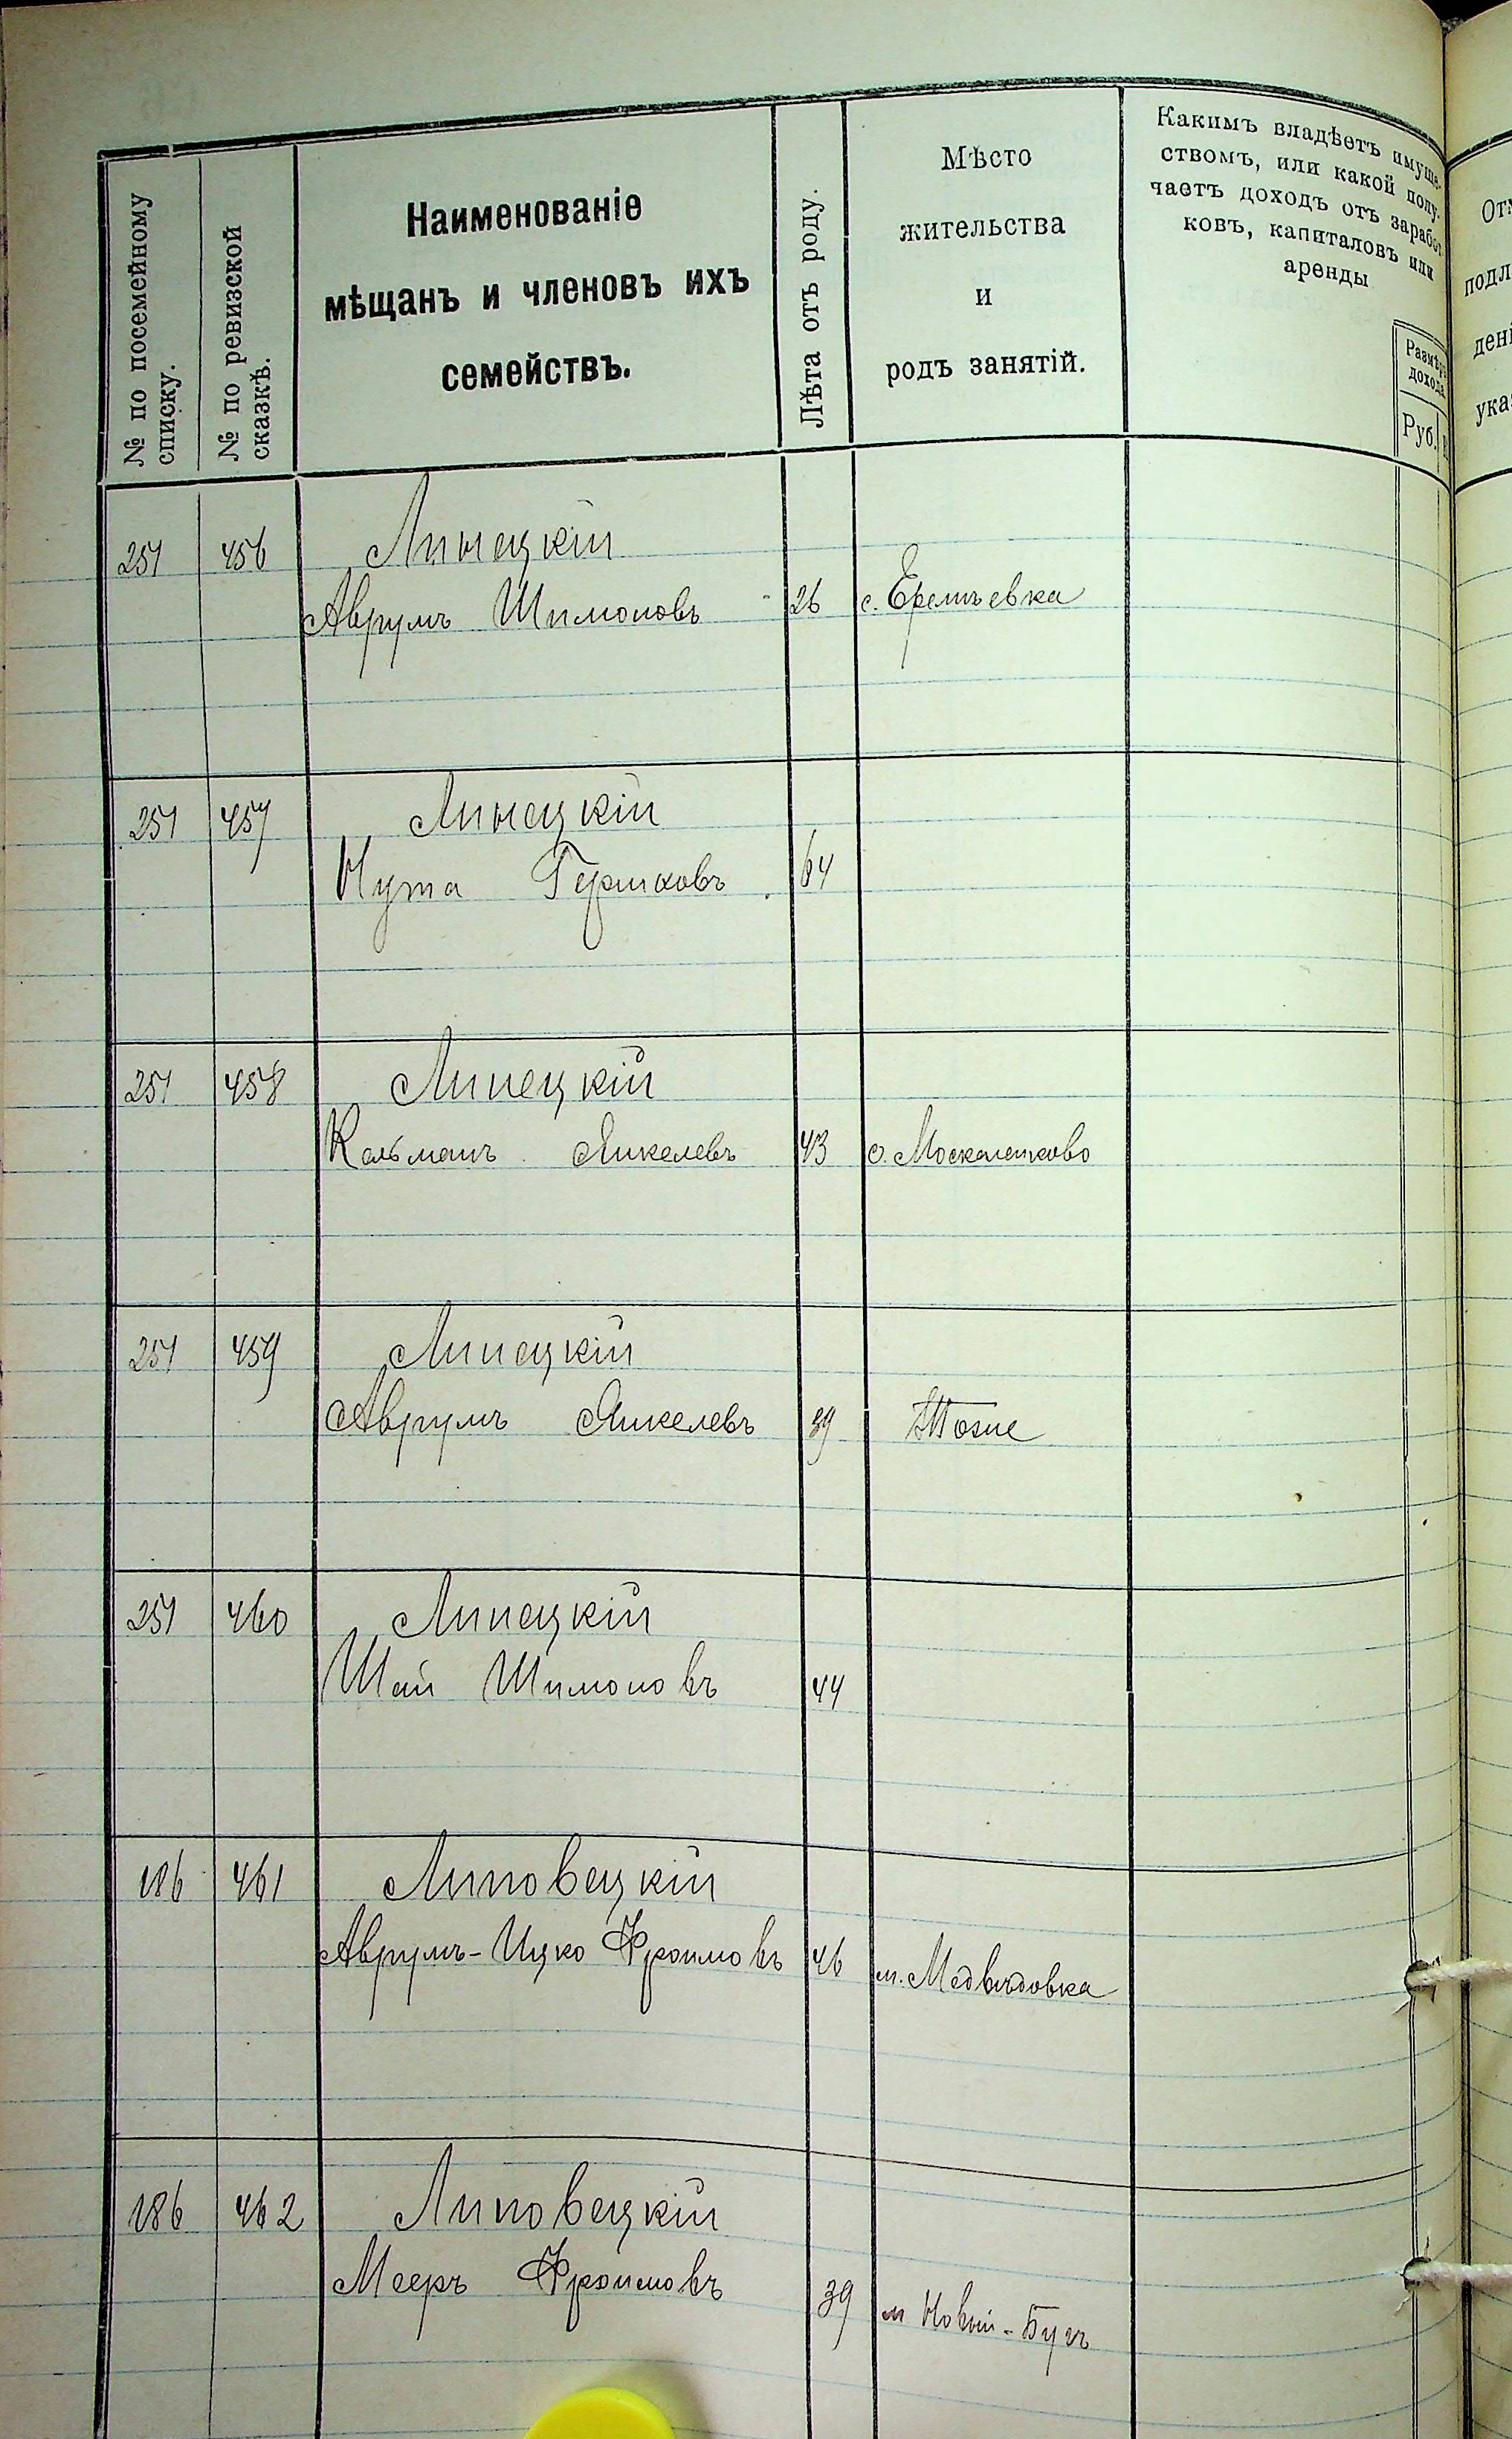 № по посемейному
списку.
№ по ревизской
сказкѣ.
Наименованіе
мѣщанъ и членовъ ихъ
семействъ.
Лѣта отъ роду.
Мѣсто
жительства
и
родъ занятій.
Какимъ владѣетъ имуще-
ствомъ, или какой полу-
чаетъ доходъ отъ заработ-
ковъ, капиталовъ или
аренды
Размѣръ
дохода
Руб.
251 456 Линецкій
Аврумъ Шимоновъ 26 с. Еремѣевка
251 457 Линецкій
Нута Гершковъ 64
251 458 Линецкій
Кальманъ Янкелевъ 43 с. Москаленково
251 459 Линецкій
Аврумъ Янкелевъ 39 Тоже
251 460 Линецкій
Шая Шимоновъ 44
186 461 Липовецкій
Аврумъ-Ицко Фроимовъ 46 м. Медвѣдовка
186 462 Липовецкій
Мееръ Фроимовъ 39 м Новый-Бугъ